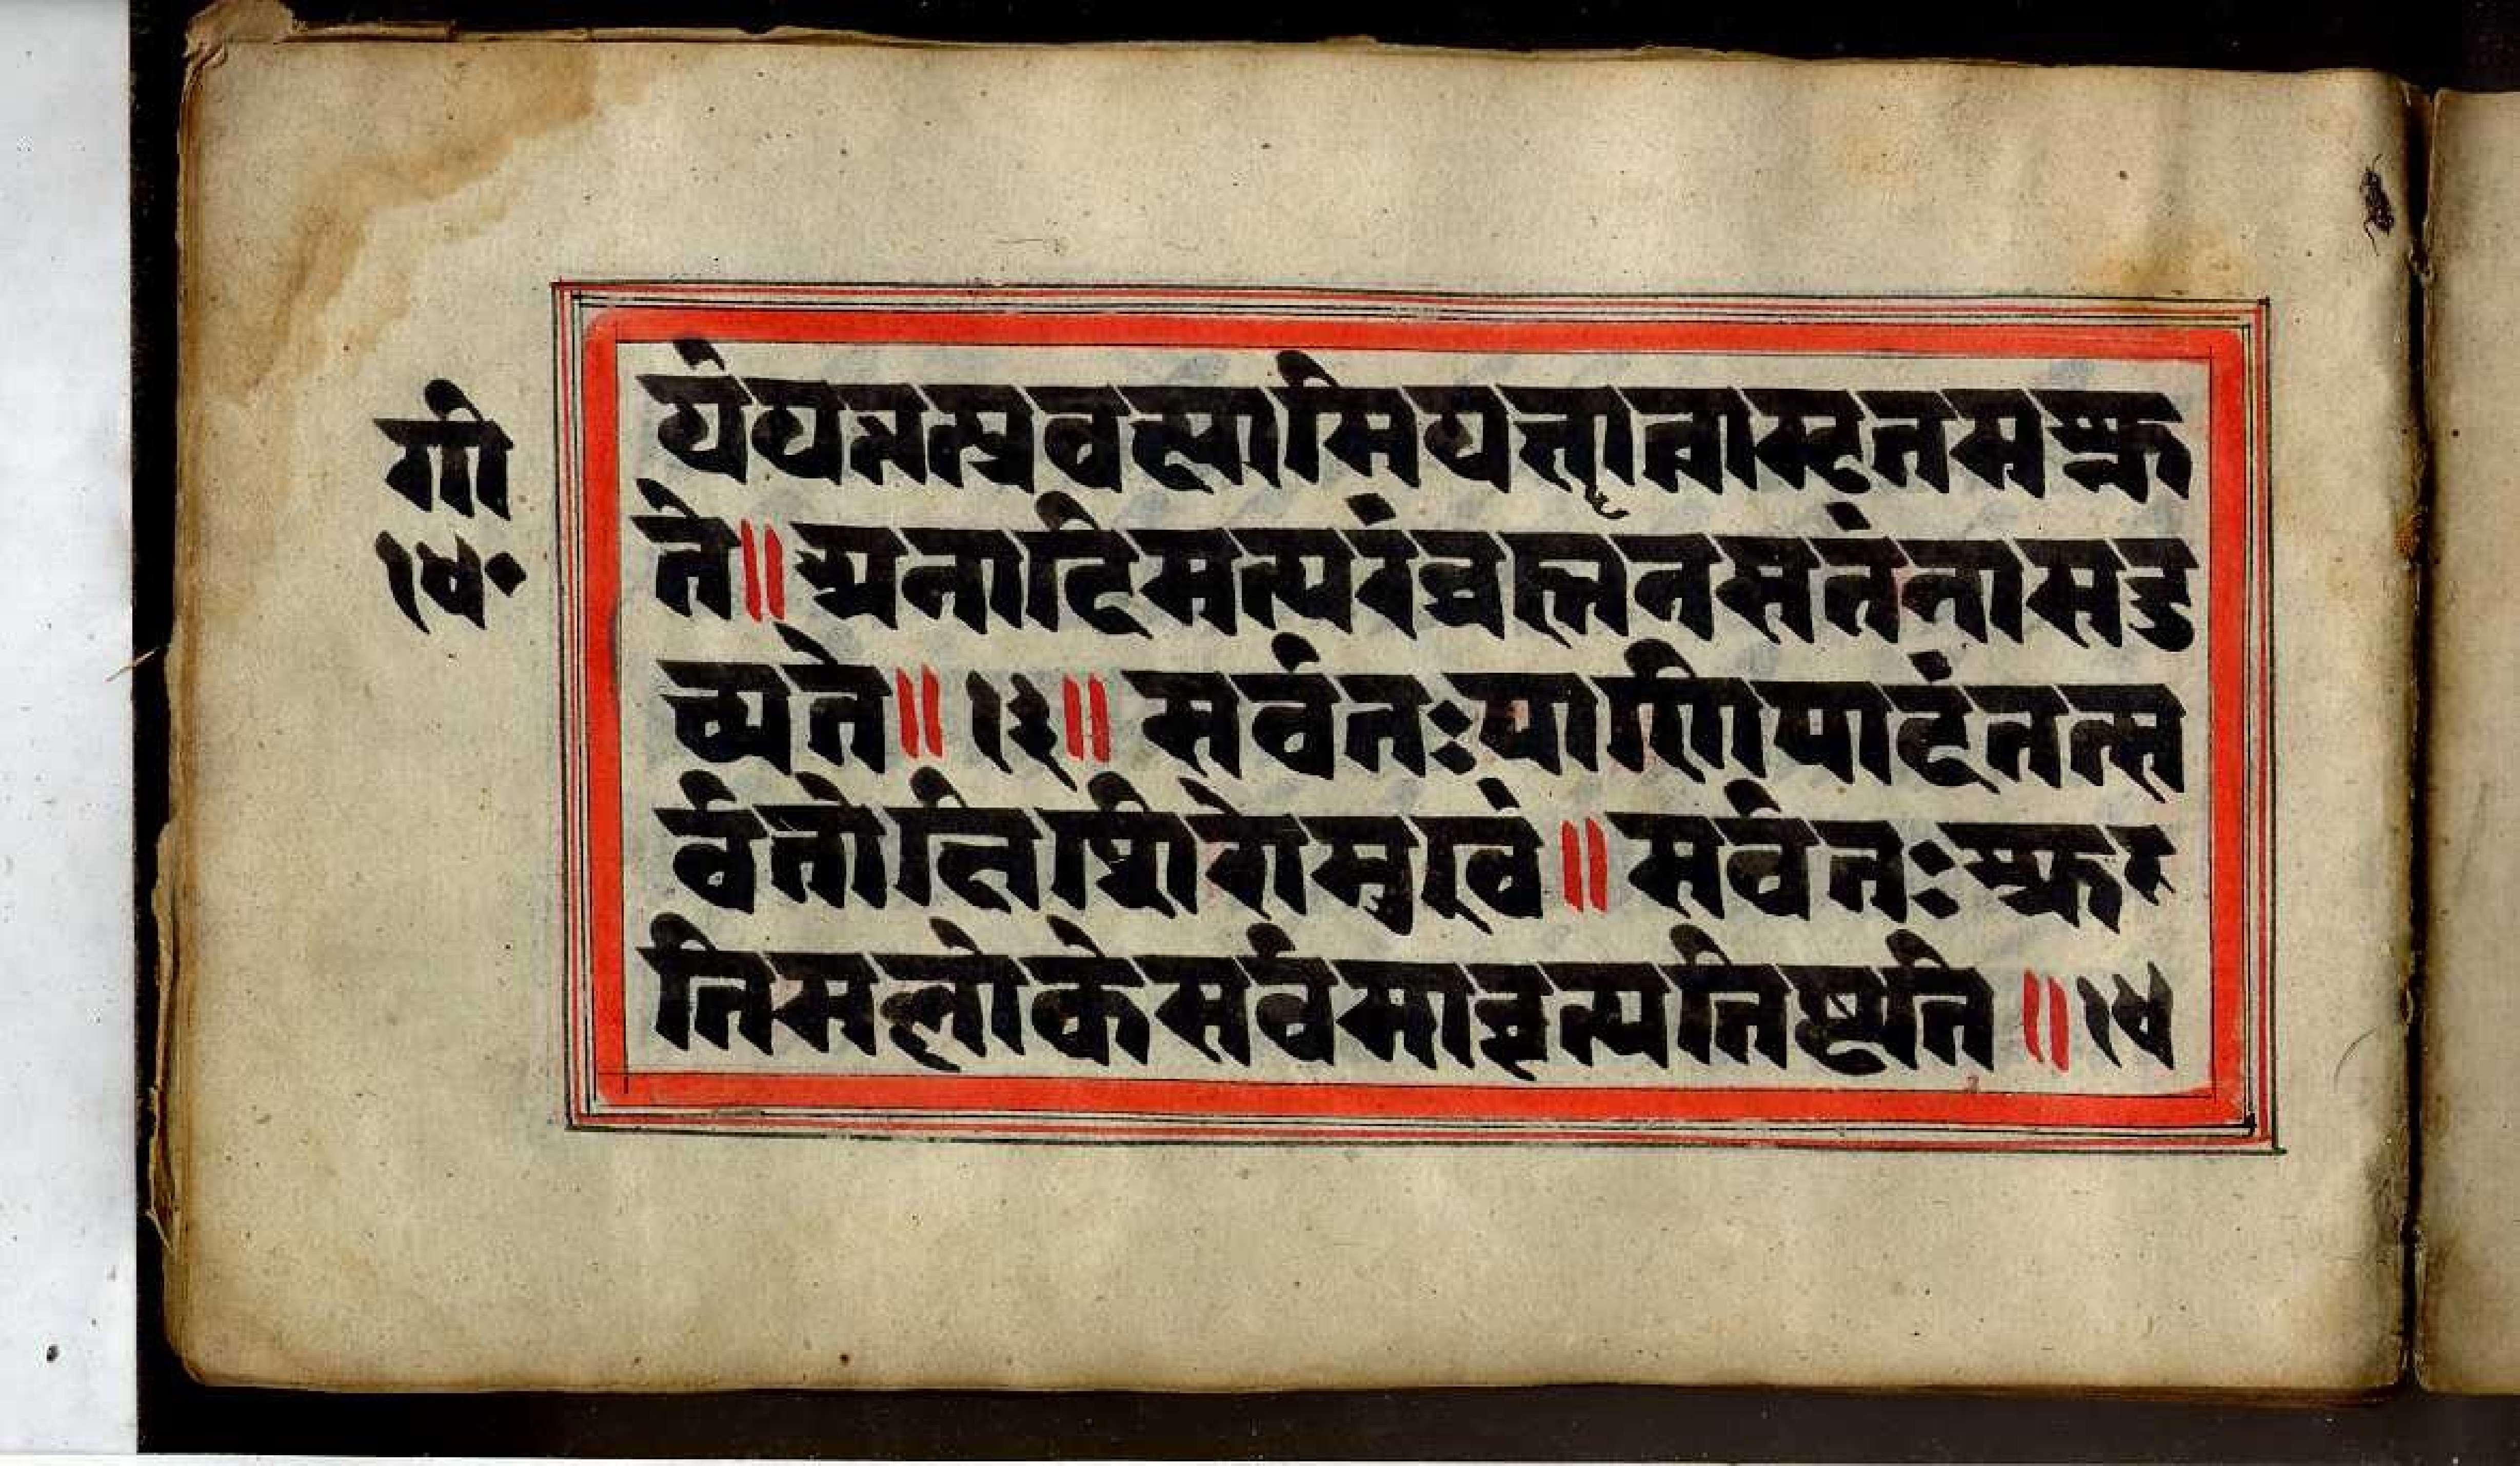 गी
१४॰
ज्ञेयंयत्तत्प्रवक्ष्यामियज्ज्ञात्वामृतमश्नु
ते॥अनादिमत्परंब्रह्मनसत्तंनासदु
च्यते॥१३॥सर्वतःपाणिपादंतत्स
र्वतोक्षिशिरोमुखं॥सर्वतःश्रु
तिमल्लोकेसर्वमावृत्यतिष्ठति॥१४